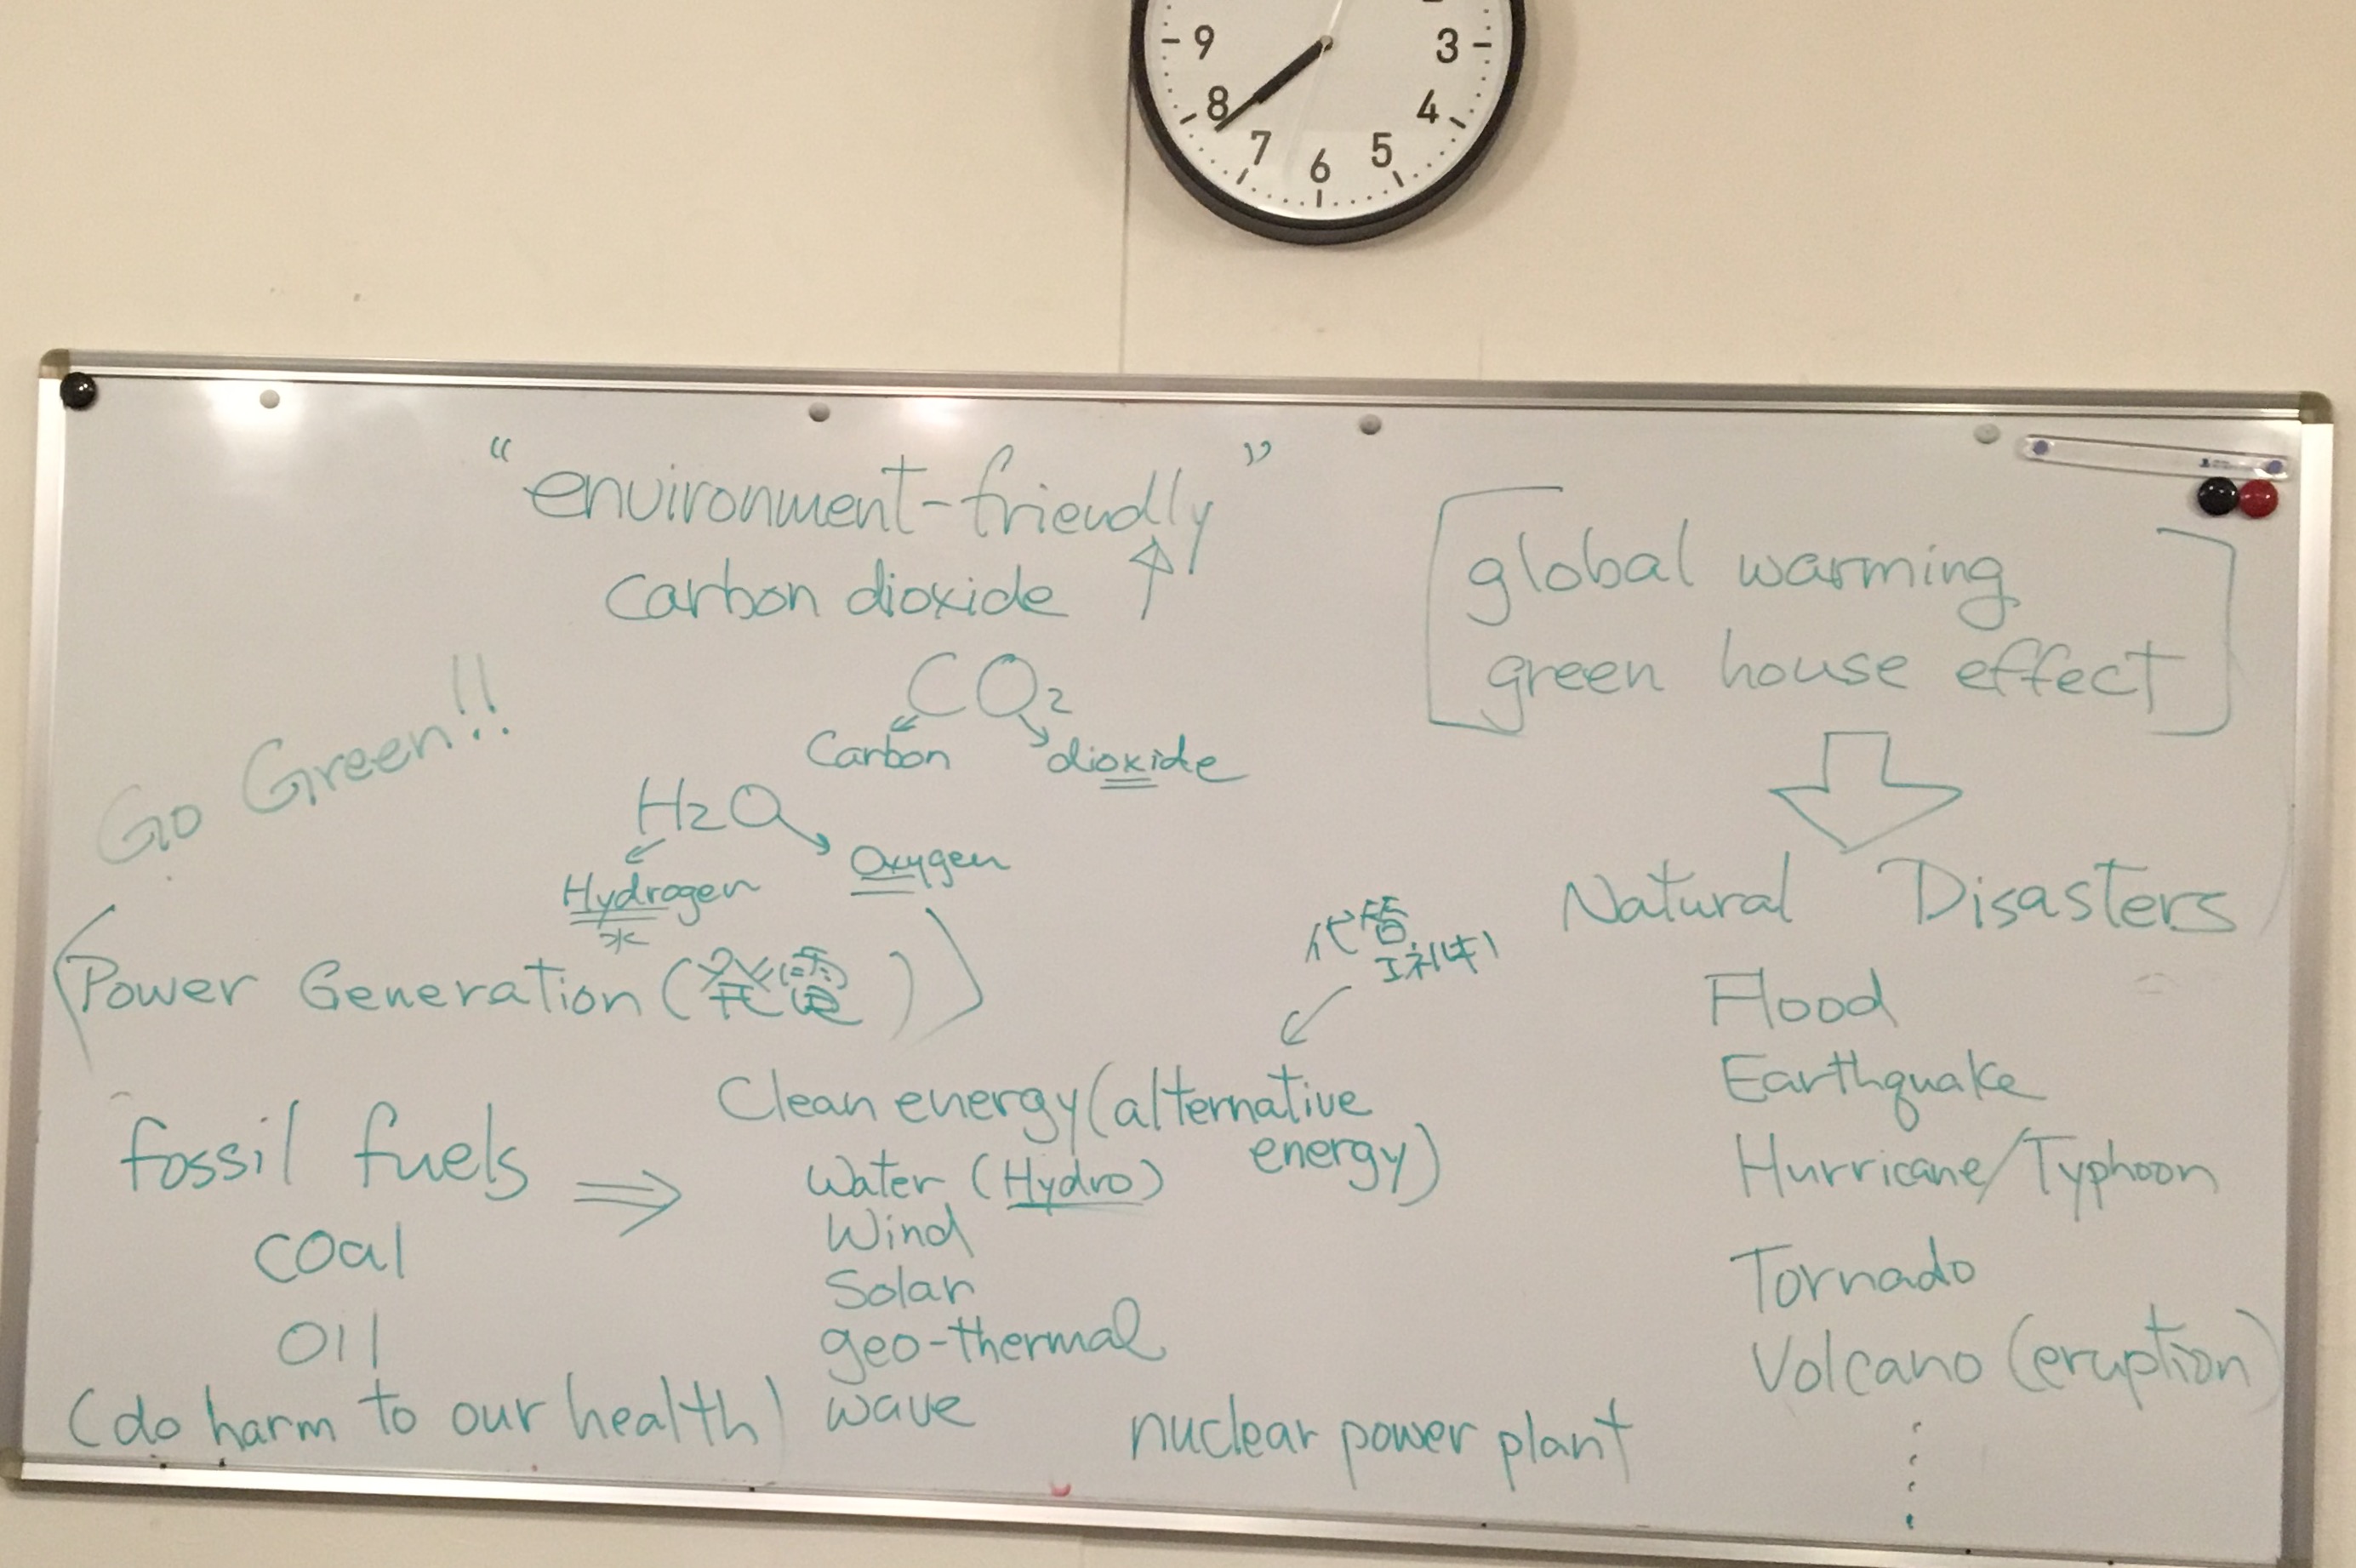 9
3
8
4
7
5
6
“environment-friendly”
carbon dioxide ↑
CO₂
Carbon
dioxide
Go Green!!
H₂O
Hydrogen
Oxygen
水
Power Generation (発電)
fossil fuels ⇒
coal
oil
(do harm to our health)
代替
エネルギー
Clean energy (alternative
energy)
Water (Hydro)
Wind
Solar
geo-thermal
wave
nuclear power plant
global warming
green house effect
Natural Disasters
Flood
Earthquake
Hurricane/Typhoon
Tornado
Volcano (eruption)